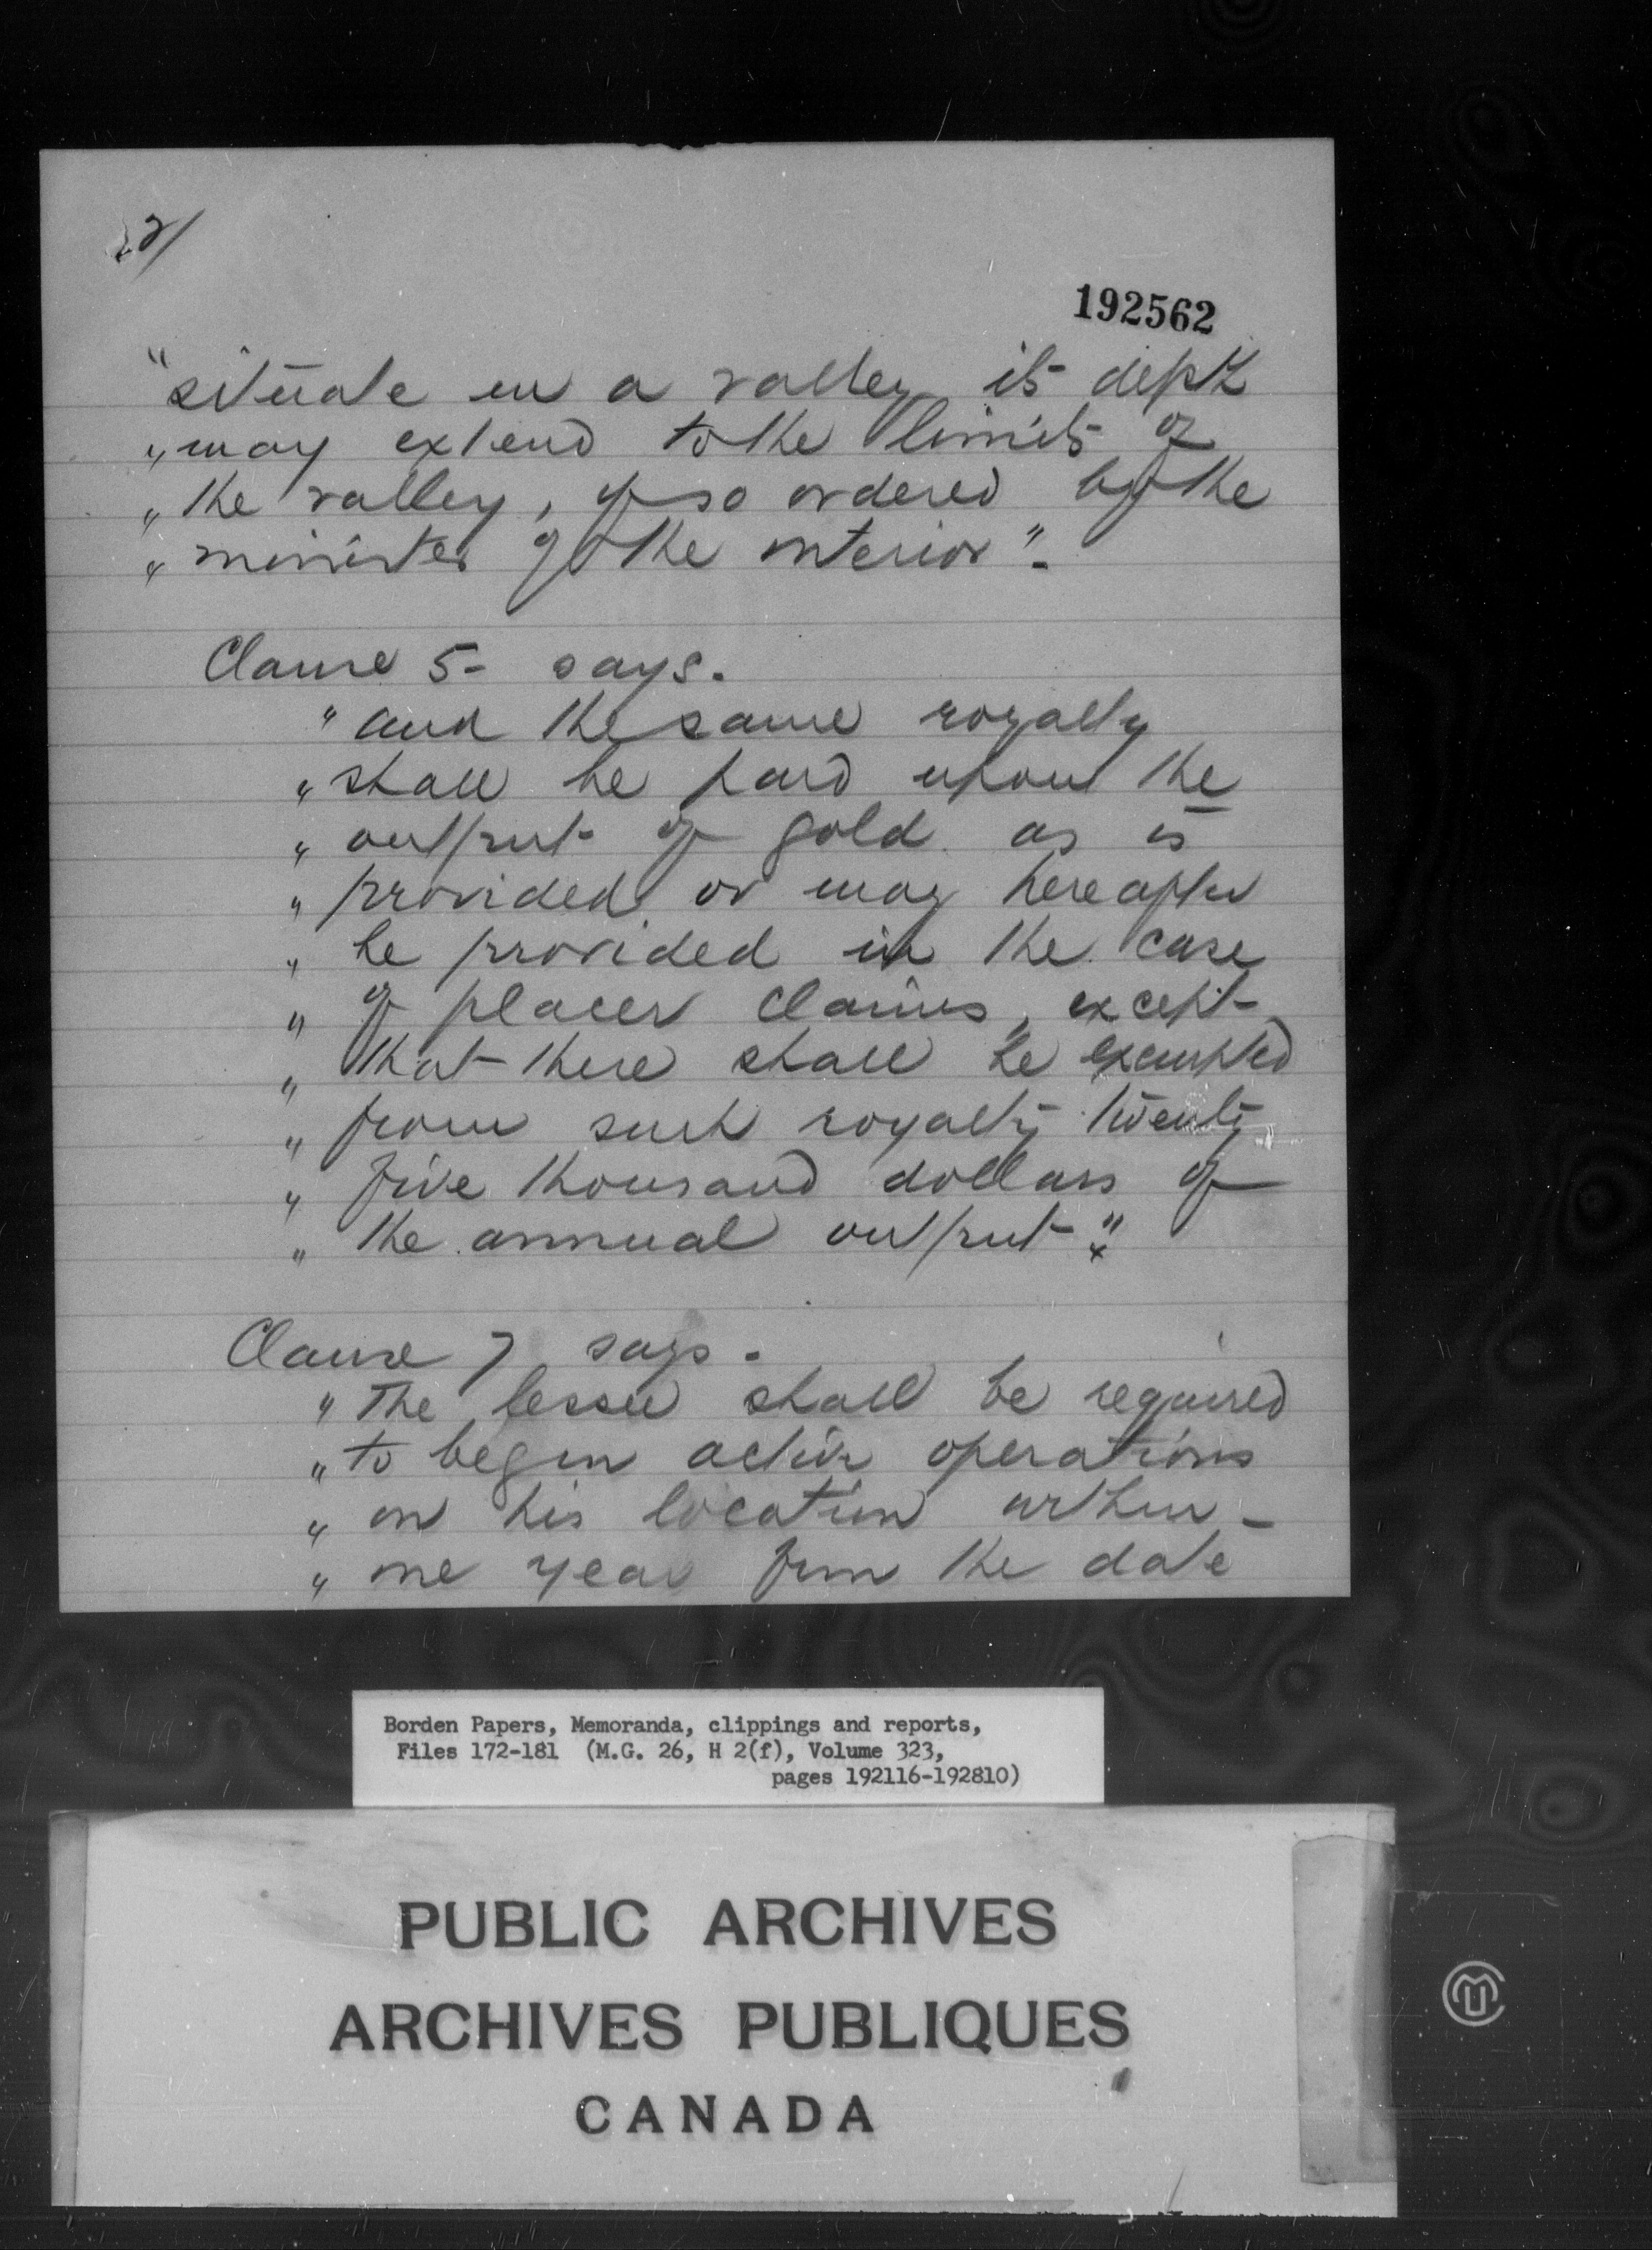 2/
192562
"situate in a valley its depth
" may extend to the limits of
" the valley, if so ordered by the
" minister of the interior".
Clause 5- says.
" and the same royalty
" shall be paid upon the
" output of gold as is
" provided or may hereafter
" be provided in the case
" of placer claims, except
" that there shall be exempted
" from such royalty twenty
" five thousand dollars of
" the annual output."
Clause 7 says.
" The lessee shall be required
" to begin active operations
" on his location within -
" one year from the date
Borden Papers, Memoranda, clippings and reports,
Files 172-181 (M.G. 26, H 2(f), Volume 323,
pages 192116-192810)
PUBLIC ARCHIVES
ARCHIVES PUBLIQUES
CANADA